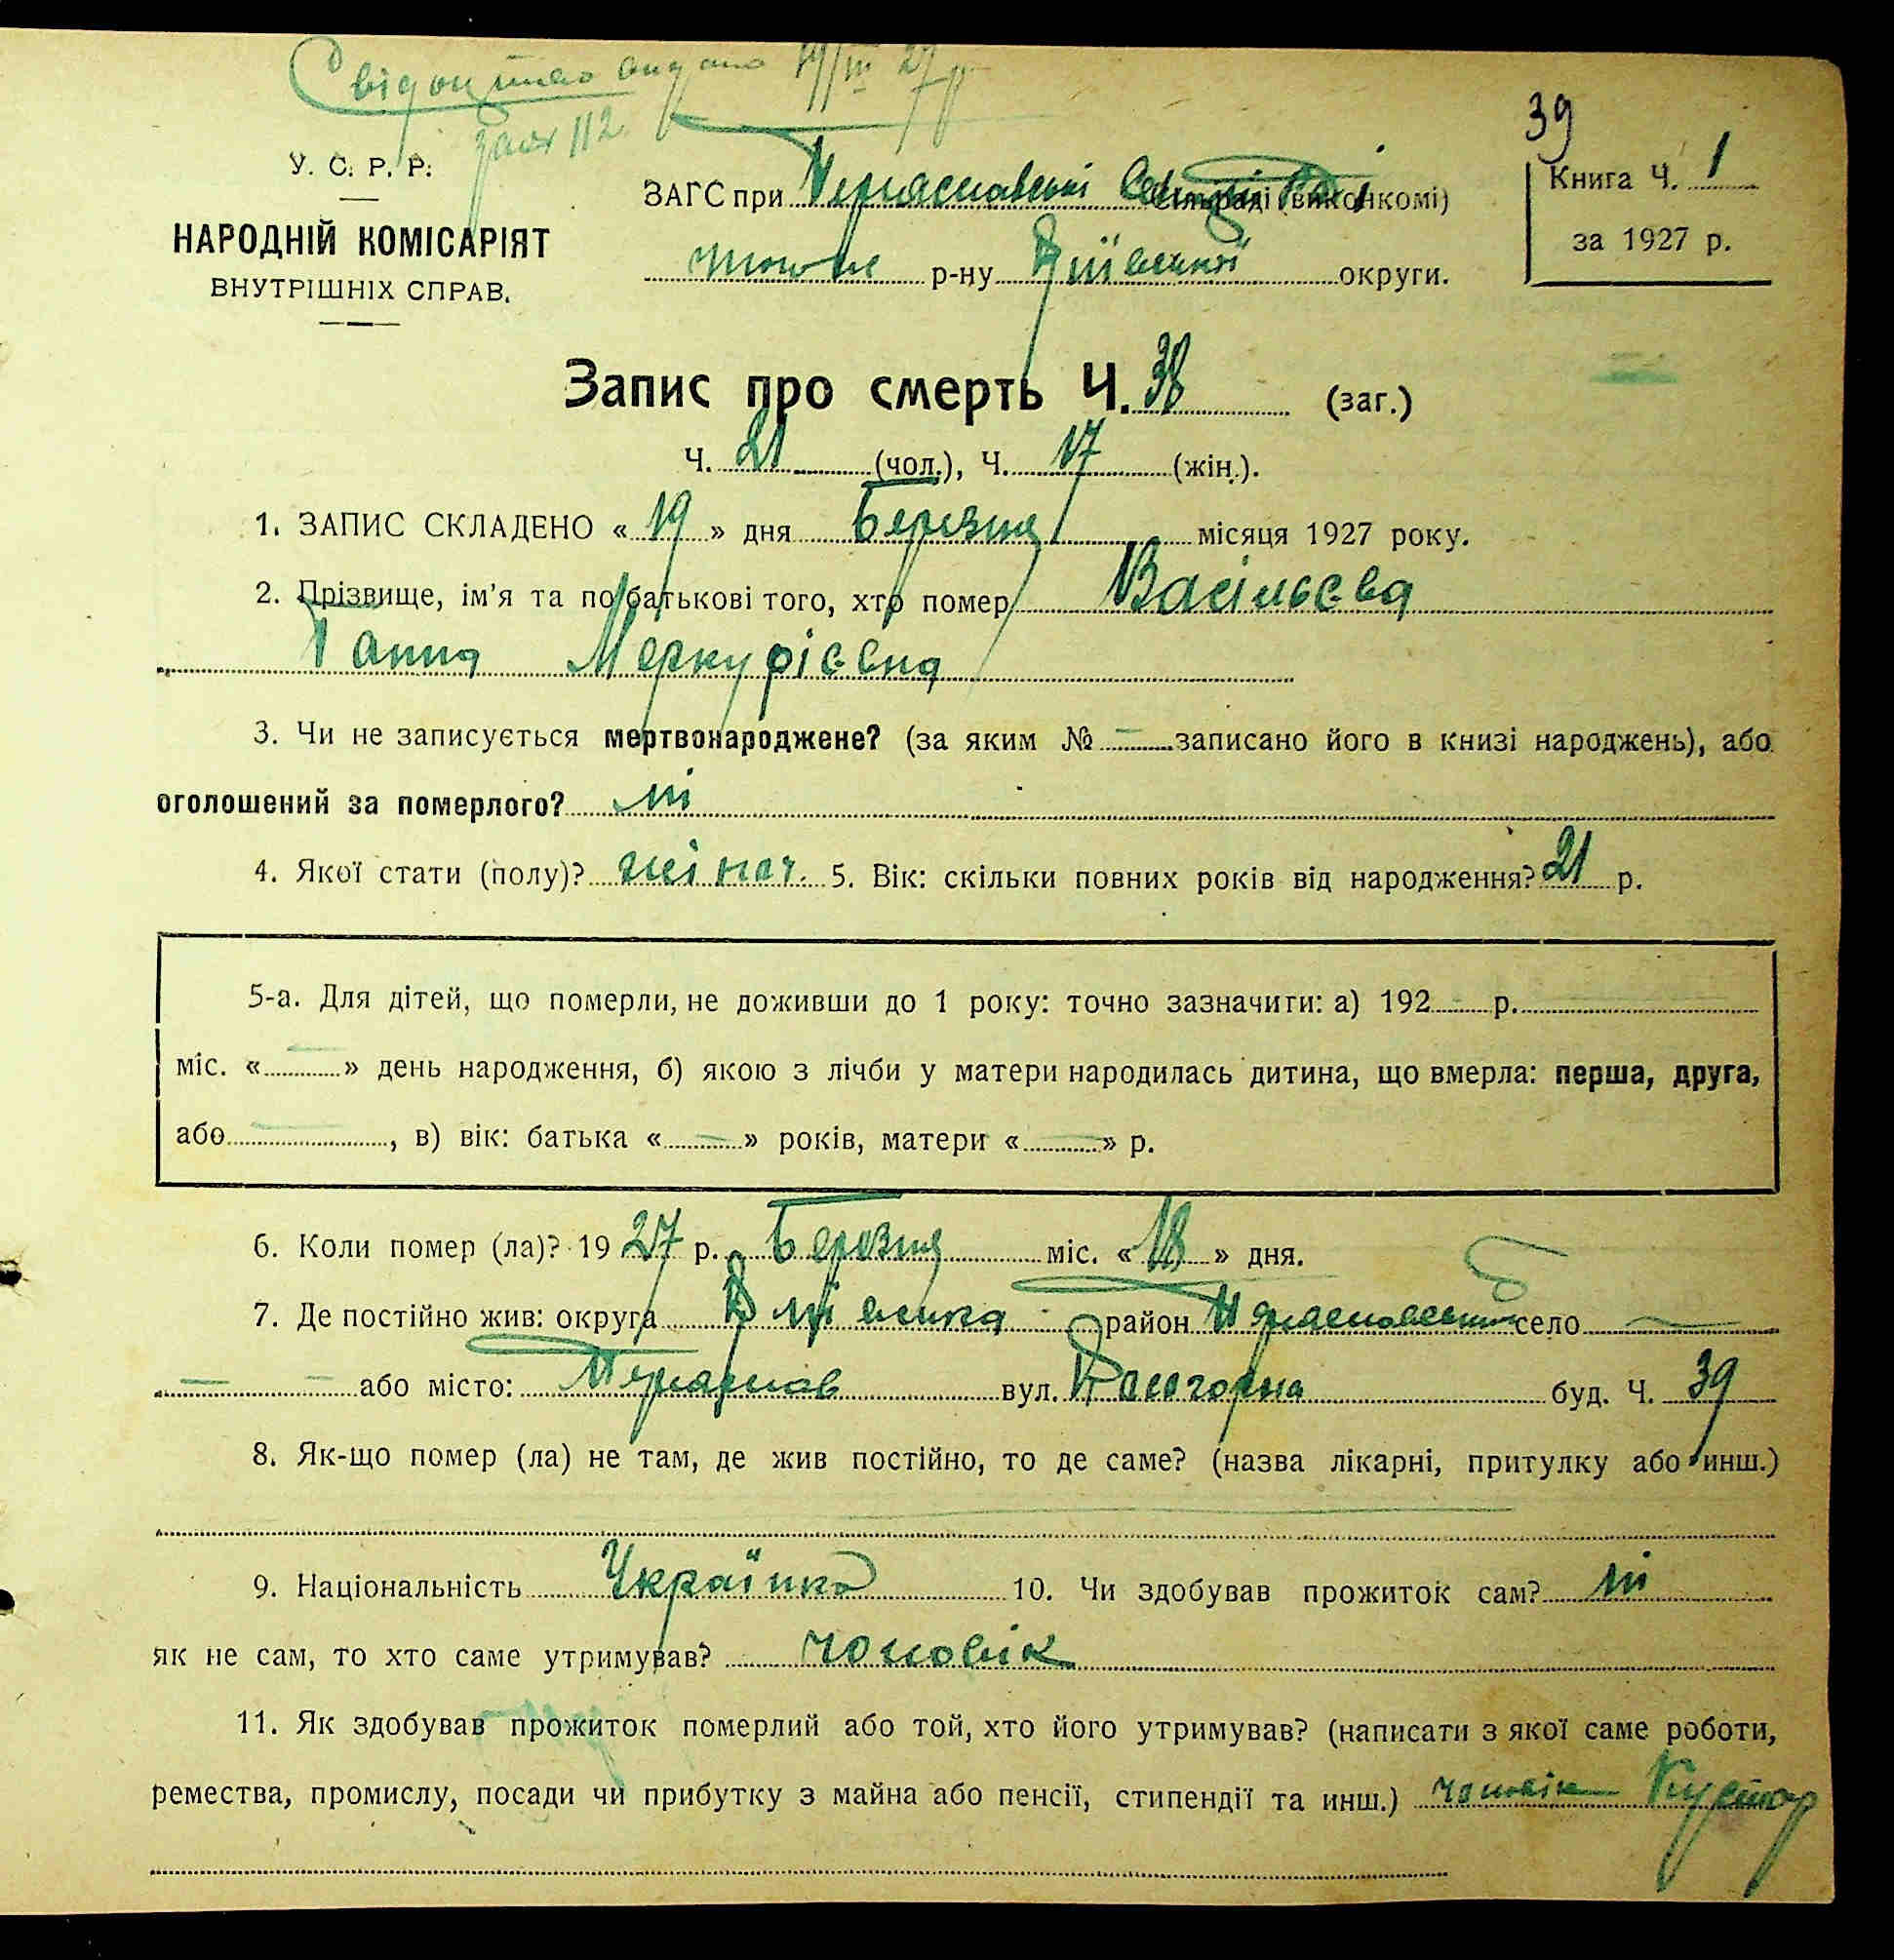 Свідоцтво видано 19/III 27 р
39
У. С. Р. Р.
ЗАГС при Переяславські сільраді (виконкомі)
Книга Ч. 1
НАРОДНІЙ КОМІСАРІЯТ
р-ну Київської округи.
за 1927 р.
ВНУТРІШНІХ СПРАВ.
Запис про смерть Ч. 38 (заг.)
Ч. 21 (чол.), Ч. 17 (жін.).
1. ЗАПИС СКЛАДЕНО « 19 » дня Березня місяця 1927 року.
2. Прізвище, ім'я та по батькові того, хто помер Васільєва
Ганна Меркурієвна
3. Чи не записується мертвонароджене? (за яким № — записано його в книзі народжень), або
оголошений за померлого? ні
4. Якої стати (полу)? жіноч. 5. Вік: скільки повних років від народження? 21 р.
5-а. Для дітей, що померли, не доживши до 1 року: точно зазначити: а) 192 р.
міс. « — » день народження, б) якою з лічби у матери народилась дитина, що вмерла: перша, друга,
або —, в) вік: батька « — » років, матери « — » р.
6. Коли помер (ла)? 1927 р. Березня міс. « 18 » дня.
7. Де постійно жив: округа Київська район Переяславський село —
— — або місто: Переяслав вул. буд. Ч. 39
8. Як-що помер (ла) не там, де жив постійно, то де саме? (назва лікарні, притулку або инш.)
—
9. Національність Українка 10. Чи здобував прожиток сам? ні
як не сам, то хто саме утримував? чоловік
11. Як здобував прожиток померлий або той, хто його утримував? (написати з якої саме роботи,
ремества, промислу, посади чи прибутку з майна або пенсії, стипендії та инш.) чоловік Кустар